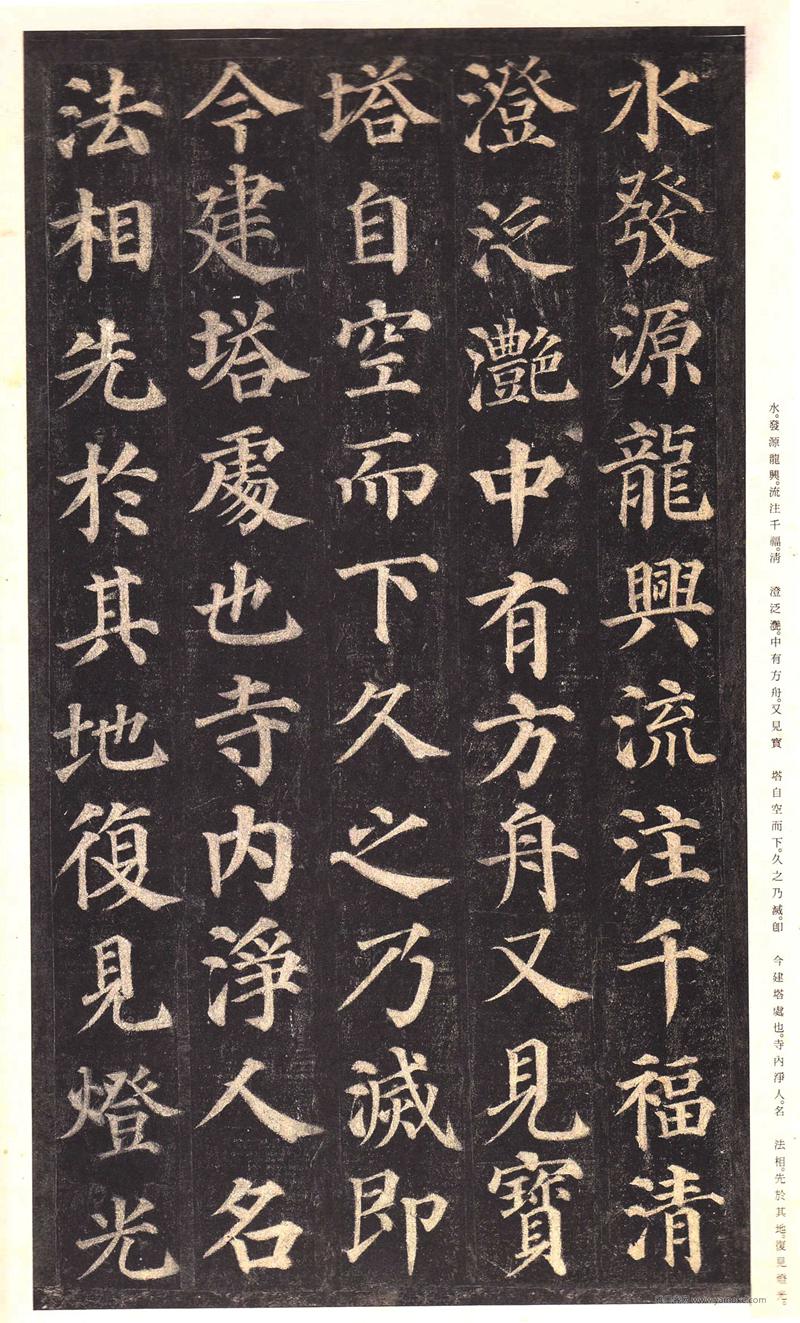 水發源龍興流注千福清
澄泛灔中有方舟又見寶
塔自空而下久之乃滅即
今建塔處也寺内淨人名
法相先於其地復見燈光
水。發源龍興。流注千福。清 澄泛灔。中有方舟。又見寶 塔自空而下。久之乃滅。卽 今建塔處也。寺內淨人。名 法相。先於其地。復見燈光。